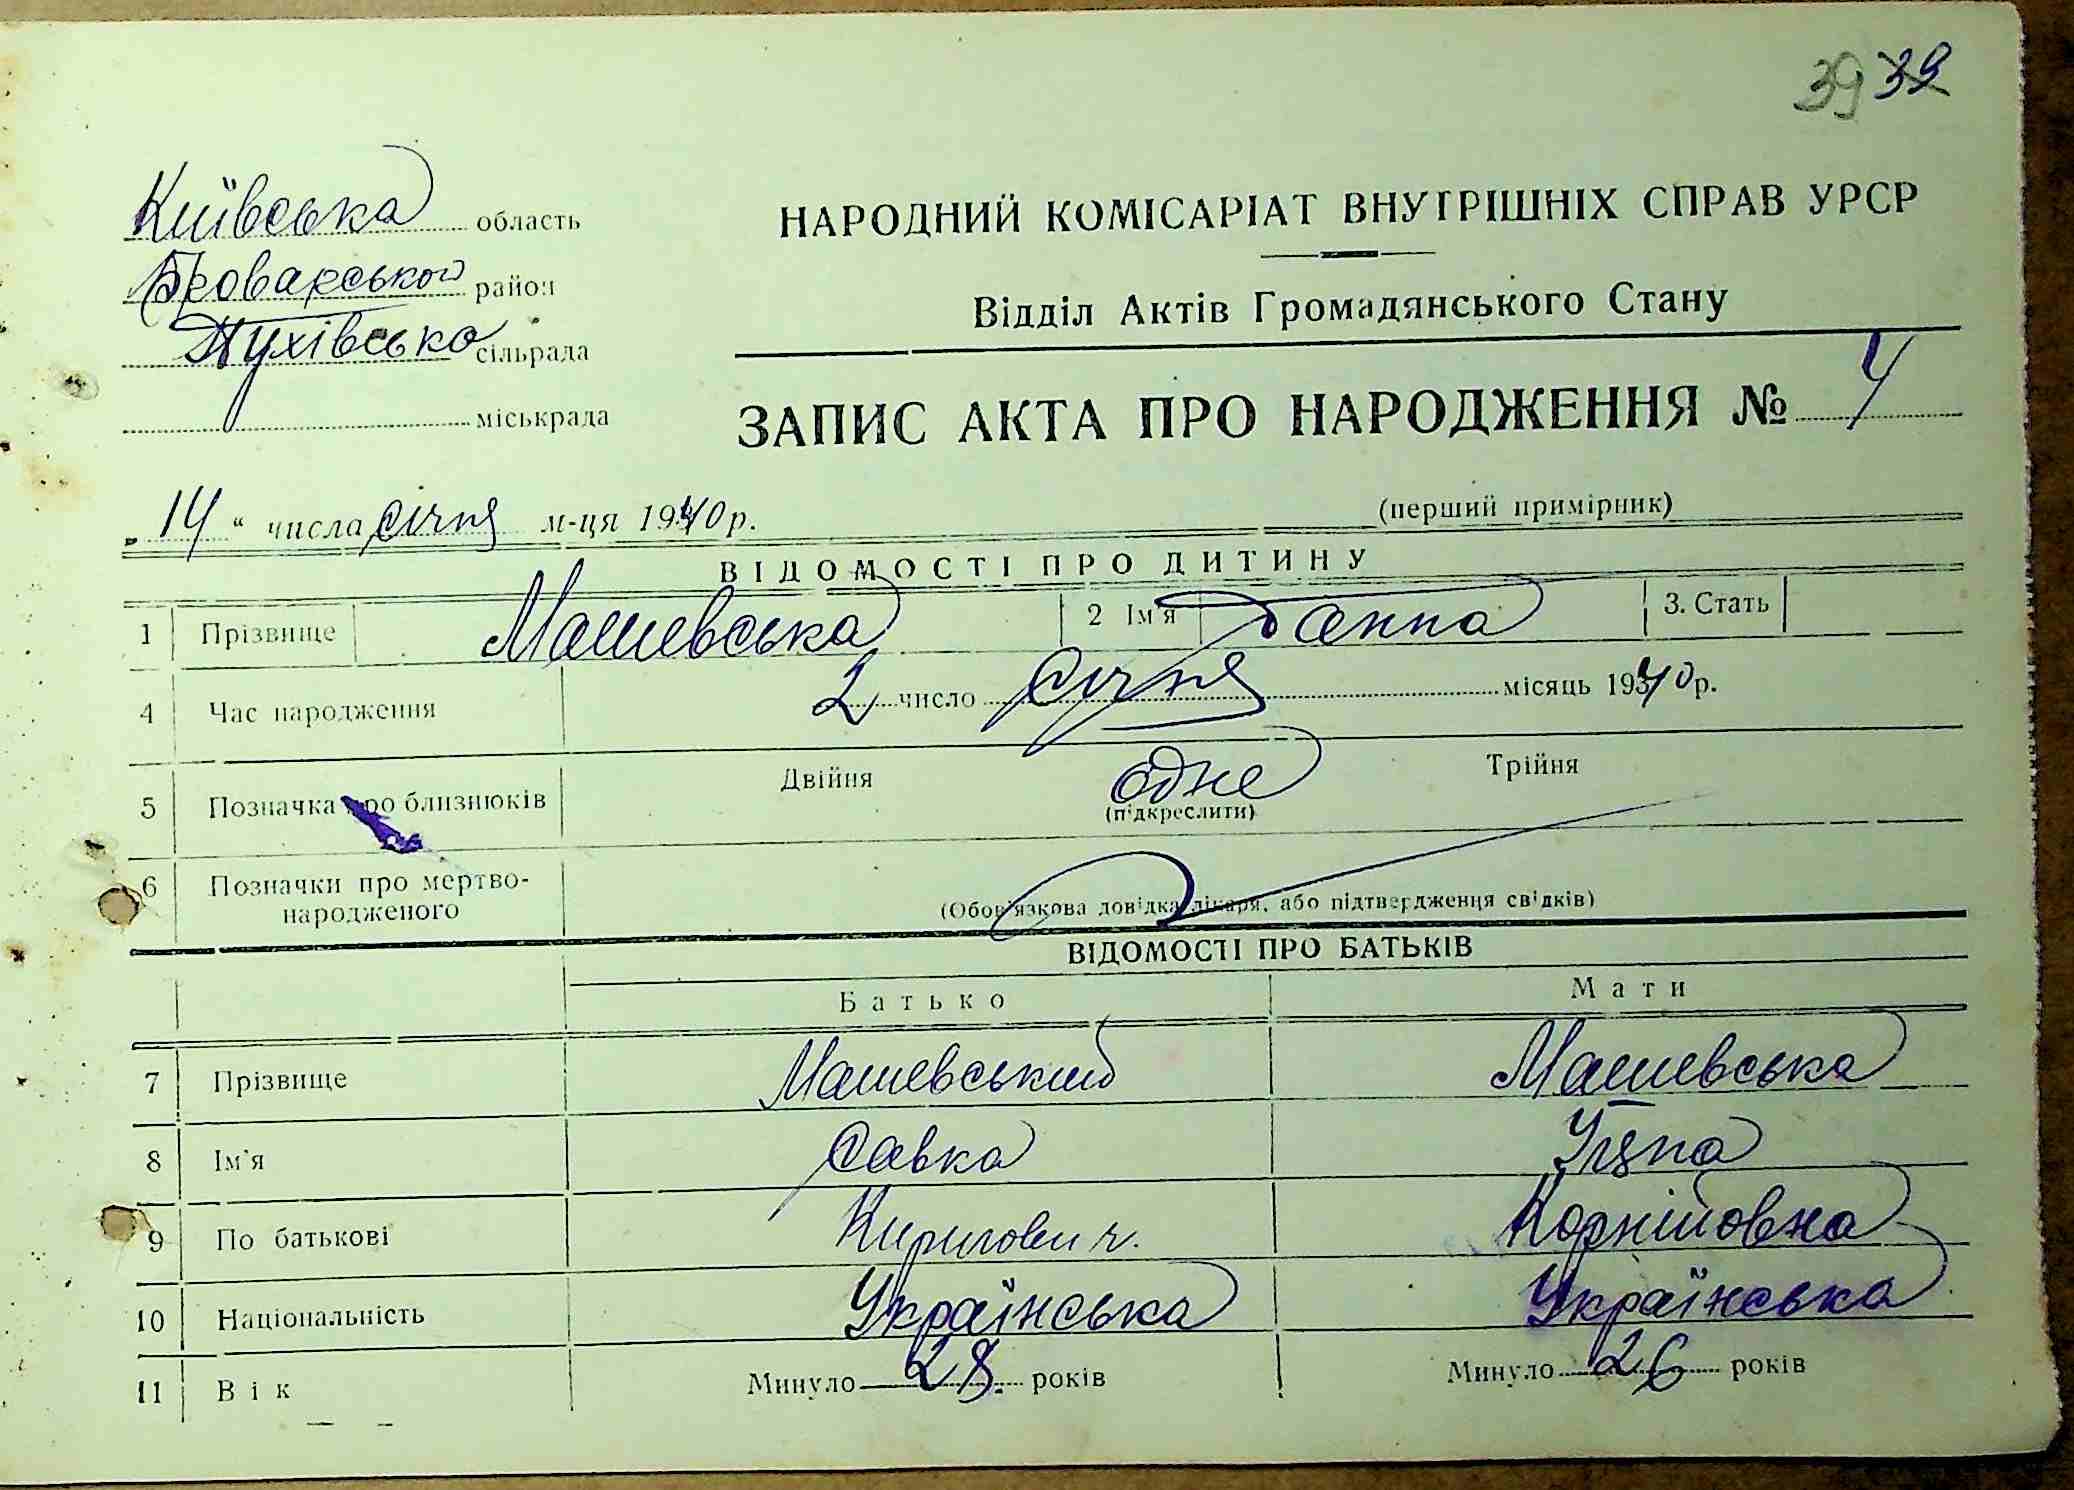 39 39
Київська область
Броварського район
Пухівсько сільрада
міськрада
НАРОДНИЙ КОМІСАРІАТ ВНУТРІШНІХ СПРАВ УРСР
Відділ Актів Громадянського Стану
ЗАПИС АКТА ПРО НАРОДЖЕННЯ № 4
„14“ числа січня м-ця 1940 р.
(перший примірник)
ВІДОМОСТІ ПРО ДИТИНУ
1 Прізвище Машевська 2 Ім'я Ганна 3. Стать
4 Час народження 2 число Січня місяць 1940 р.
5 Позначка про близнюків Двійня одне Трійня
(підкреслити)
6 Позначки про мертво-
народженого
(Обов'язкова довідка лікаря, або підтвердження свідків)
ВІДОМОСТІ ПРО БАТЬКІВ
Батько Мати
7 Прізвище Машевський Машевська
8 Ім'я Савка
9 По батькові Кирилович. Корнійовна
10 Національність Українська Українська
11 Вік Минуло 28. років Минуло 26 років